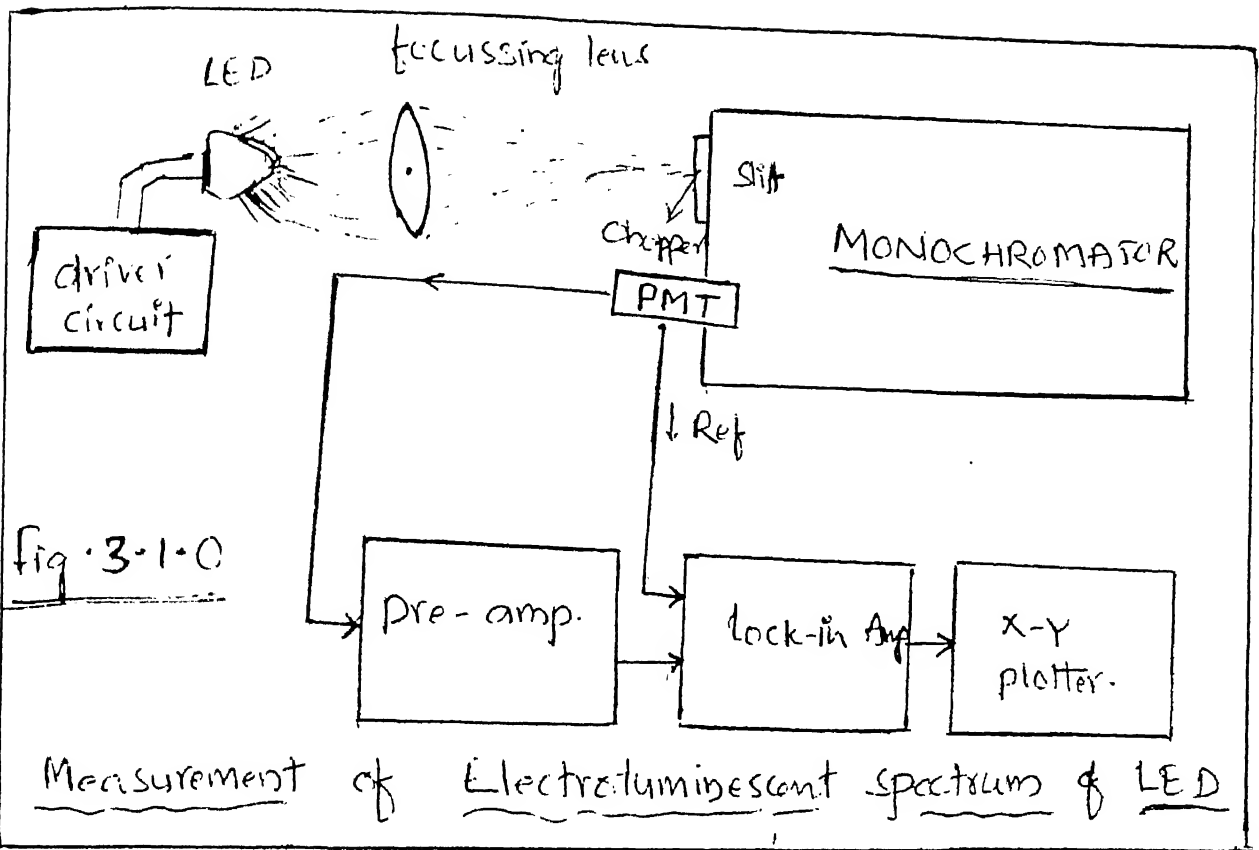 LED
focussing lens
Slit
Chopper
MONOCHROMATOR
driver
circuit
PMT
↓ Ref
fig.3.1.0
Pre-amp.
lock-in Amp
X-Y
plotter.
Measurement of Electroluminescent spectrum of LED